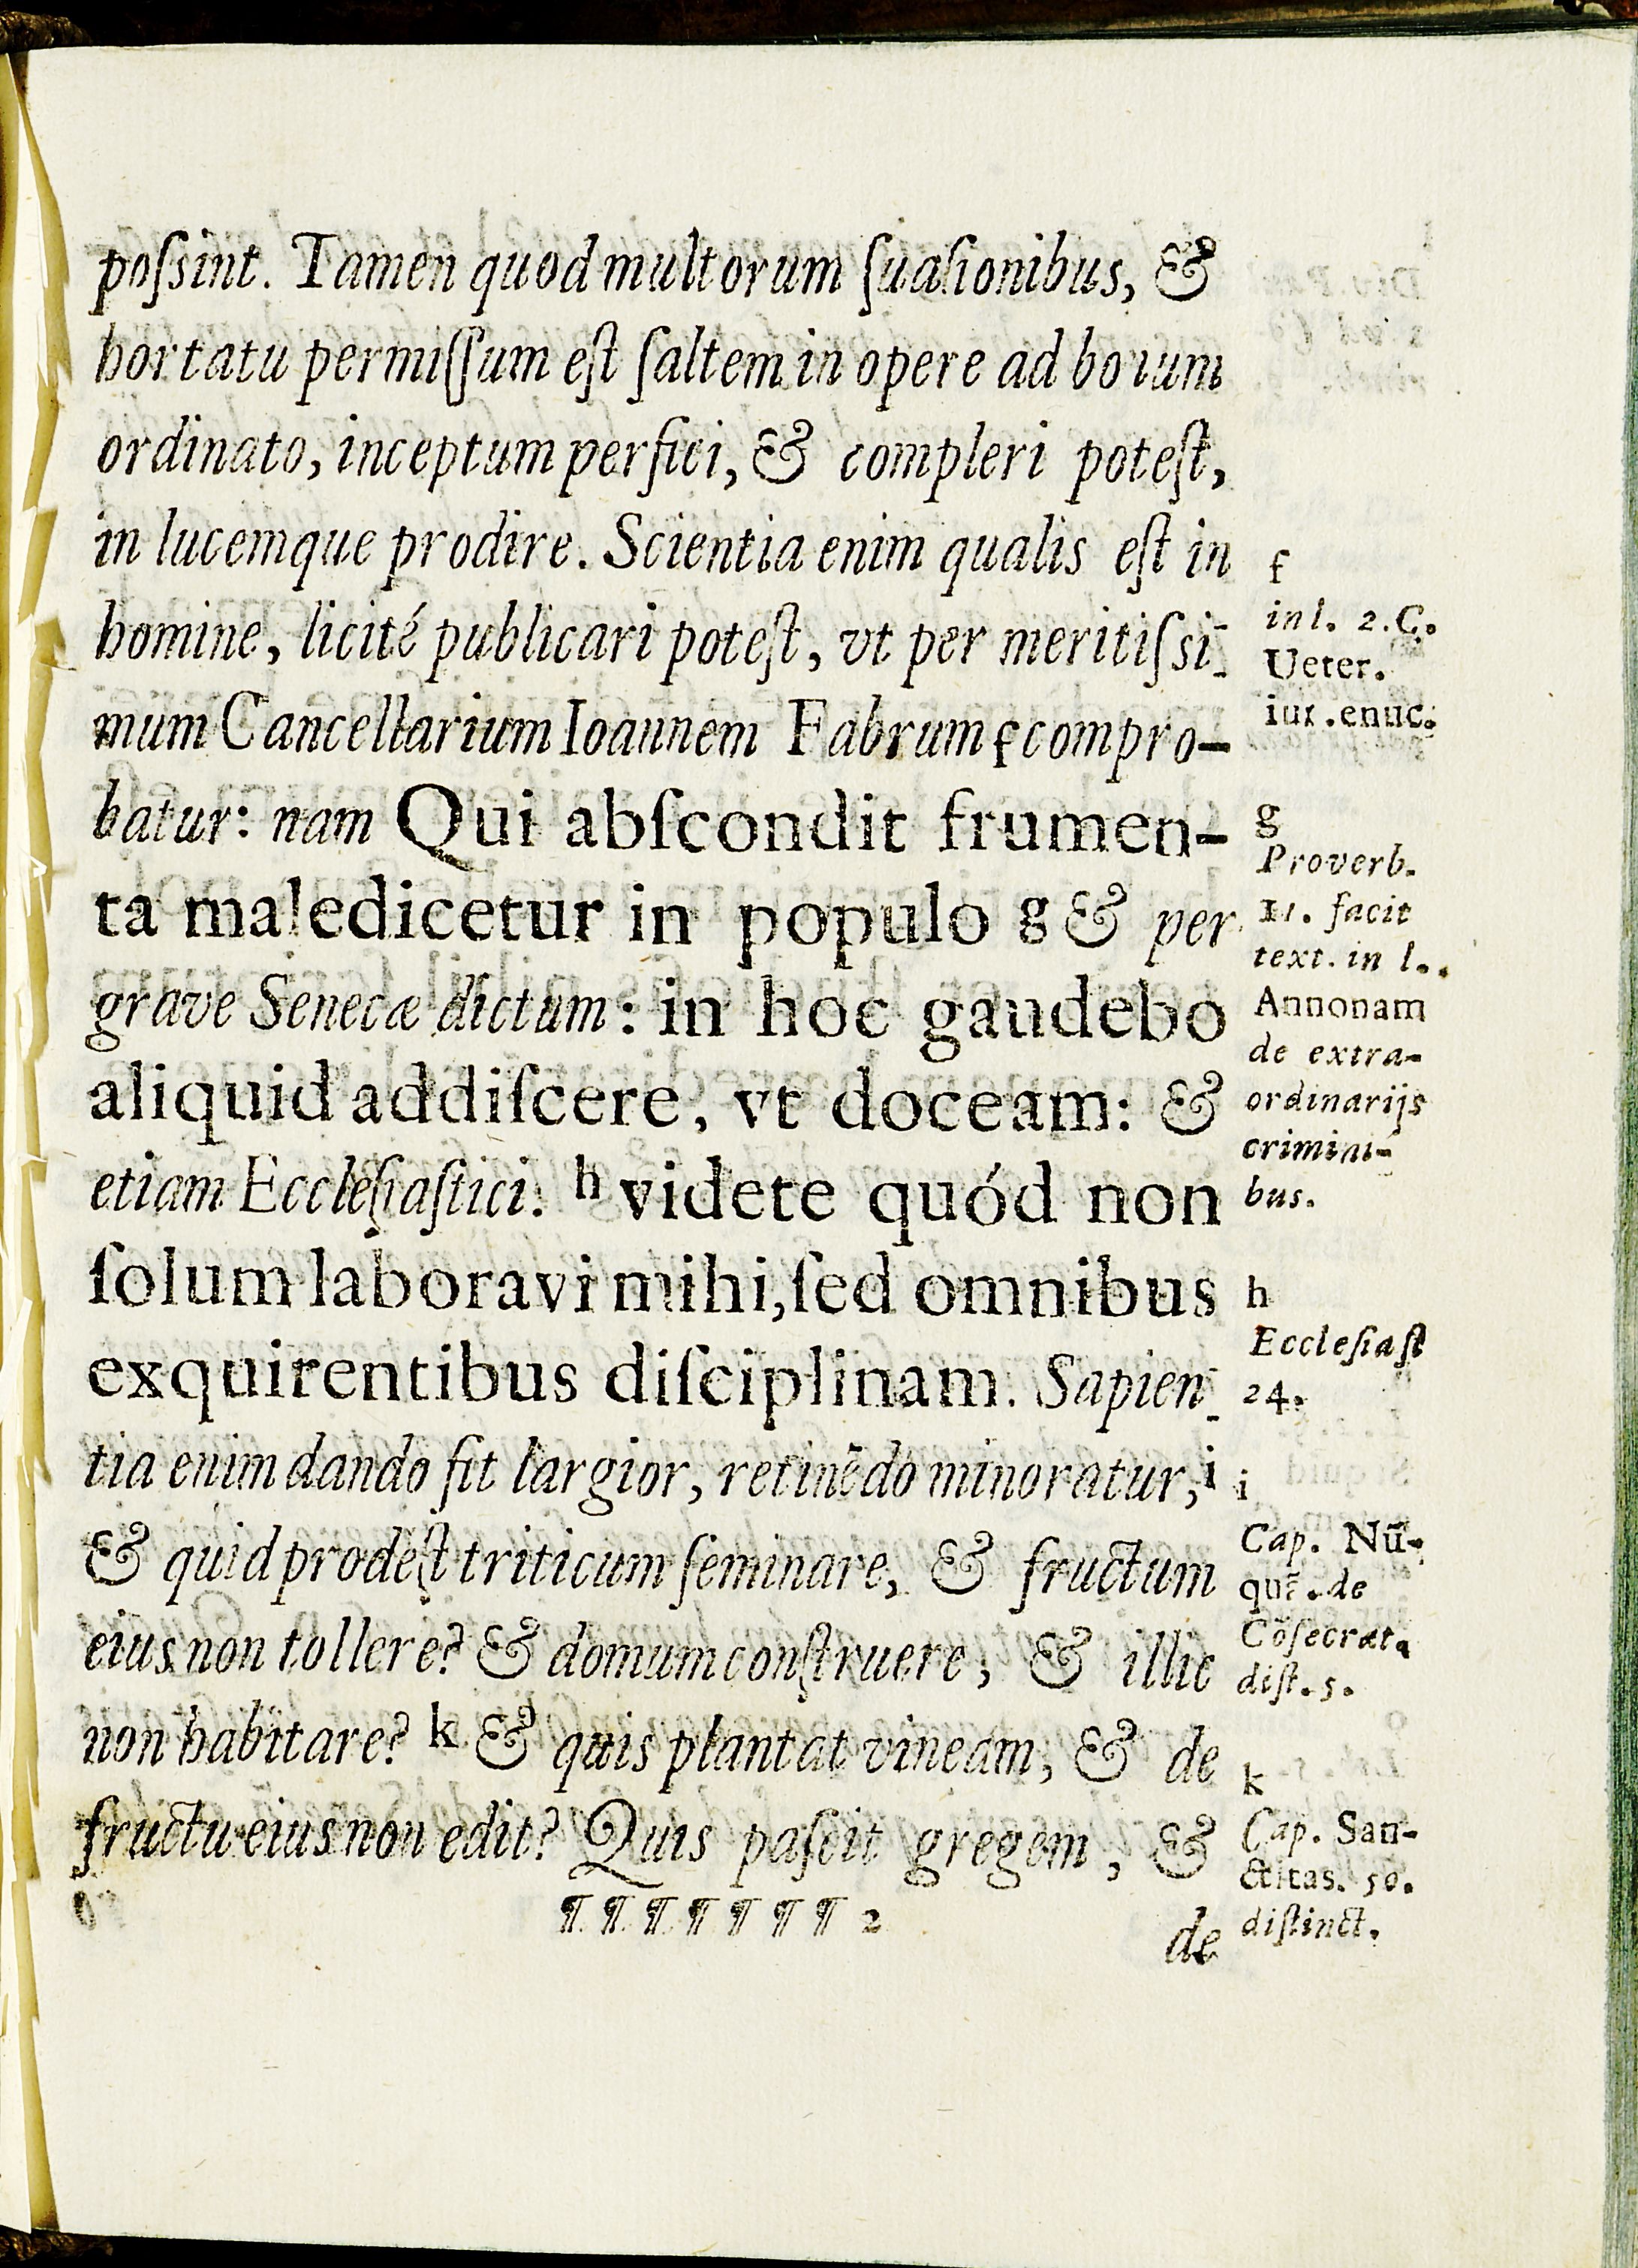 poſsint. Tamen quod multorum ſuaſionibus, &
hortatu permiſſum eſt ſaltem in opere ad bonum
ordinato, inceptum perfici, & compleri poteſt,
in lucemque prodire. Scientia enim qualis eſt in
homine, licité publicari poteſt, vt per meritiſsi-
mum Cancellarium Ioannem Fabrum f compro-
batur: nam Qui abſcondit frumen-
ta maledicetur in populo g & per
grave Senecæ dictum: in hoc gaudebo
aliquid addiſcere, vt doceam: &
etiam Eccleſiaſtici: h videte quód non
ſolum laboravi mihi, ſed omnibus
exquirentibus diſciplinam. Sapien-
tia enim dando fit largior, retinẽdo minoratur, i
& quid prodeſt triticum ſeminare, & fructum
eius non tollere? & domum conſtruere, & illic
non habitare? k & quis plantat vineam, & de
fructu eius non edit? Quis paſcit gregem, &
¶ ¶ ¶ ¶ ¶ ¶ ¶ 2
de
f
in l. 2. C.
Ueter.
iur. enuc.
g
Proverb.
11. facit
text. in l.
Annonam
de extra-
ordinarijs
crimini-
bus.
h
Eccleſiaſt
24.
i
Cap. Nũ-
quĩ. de
Cõſecrat.
diſt. 5.
k
Cap. San-
ctitas. 50.
diſtinct.